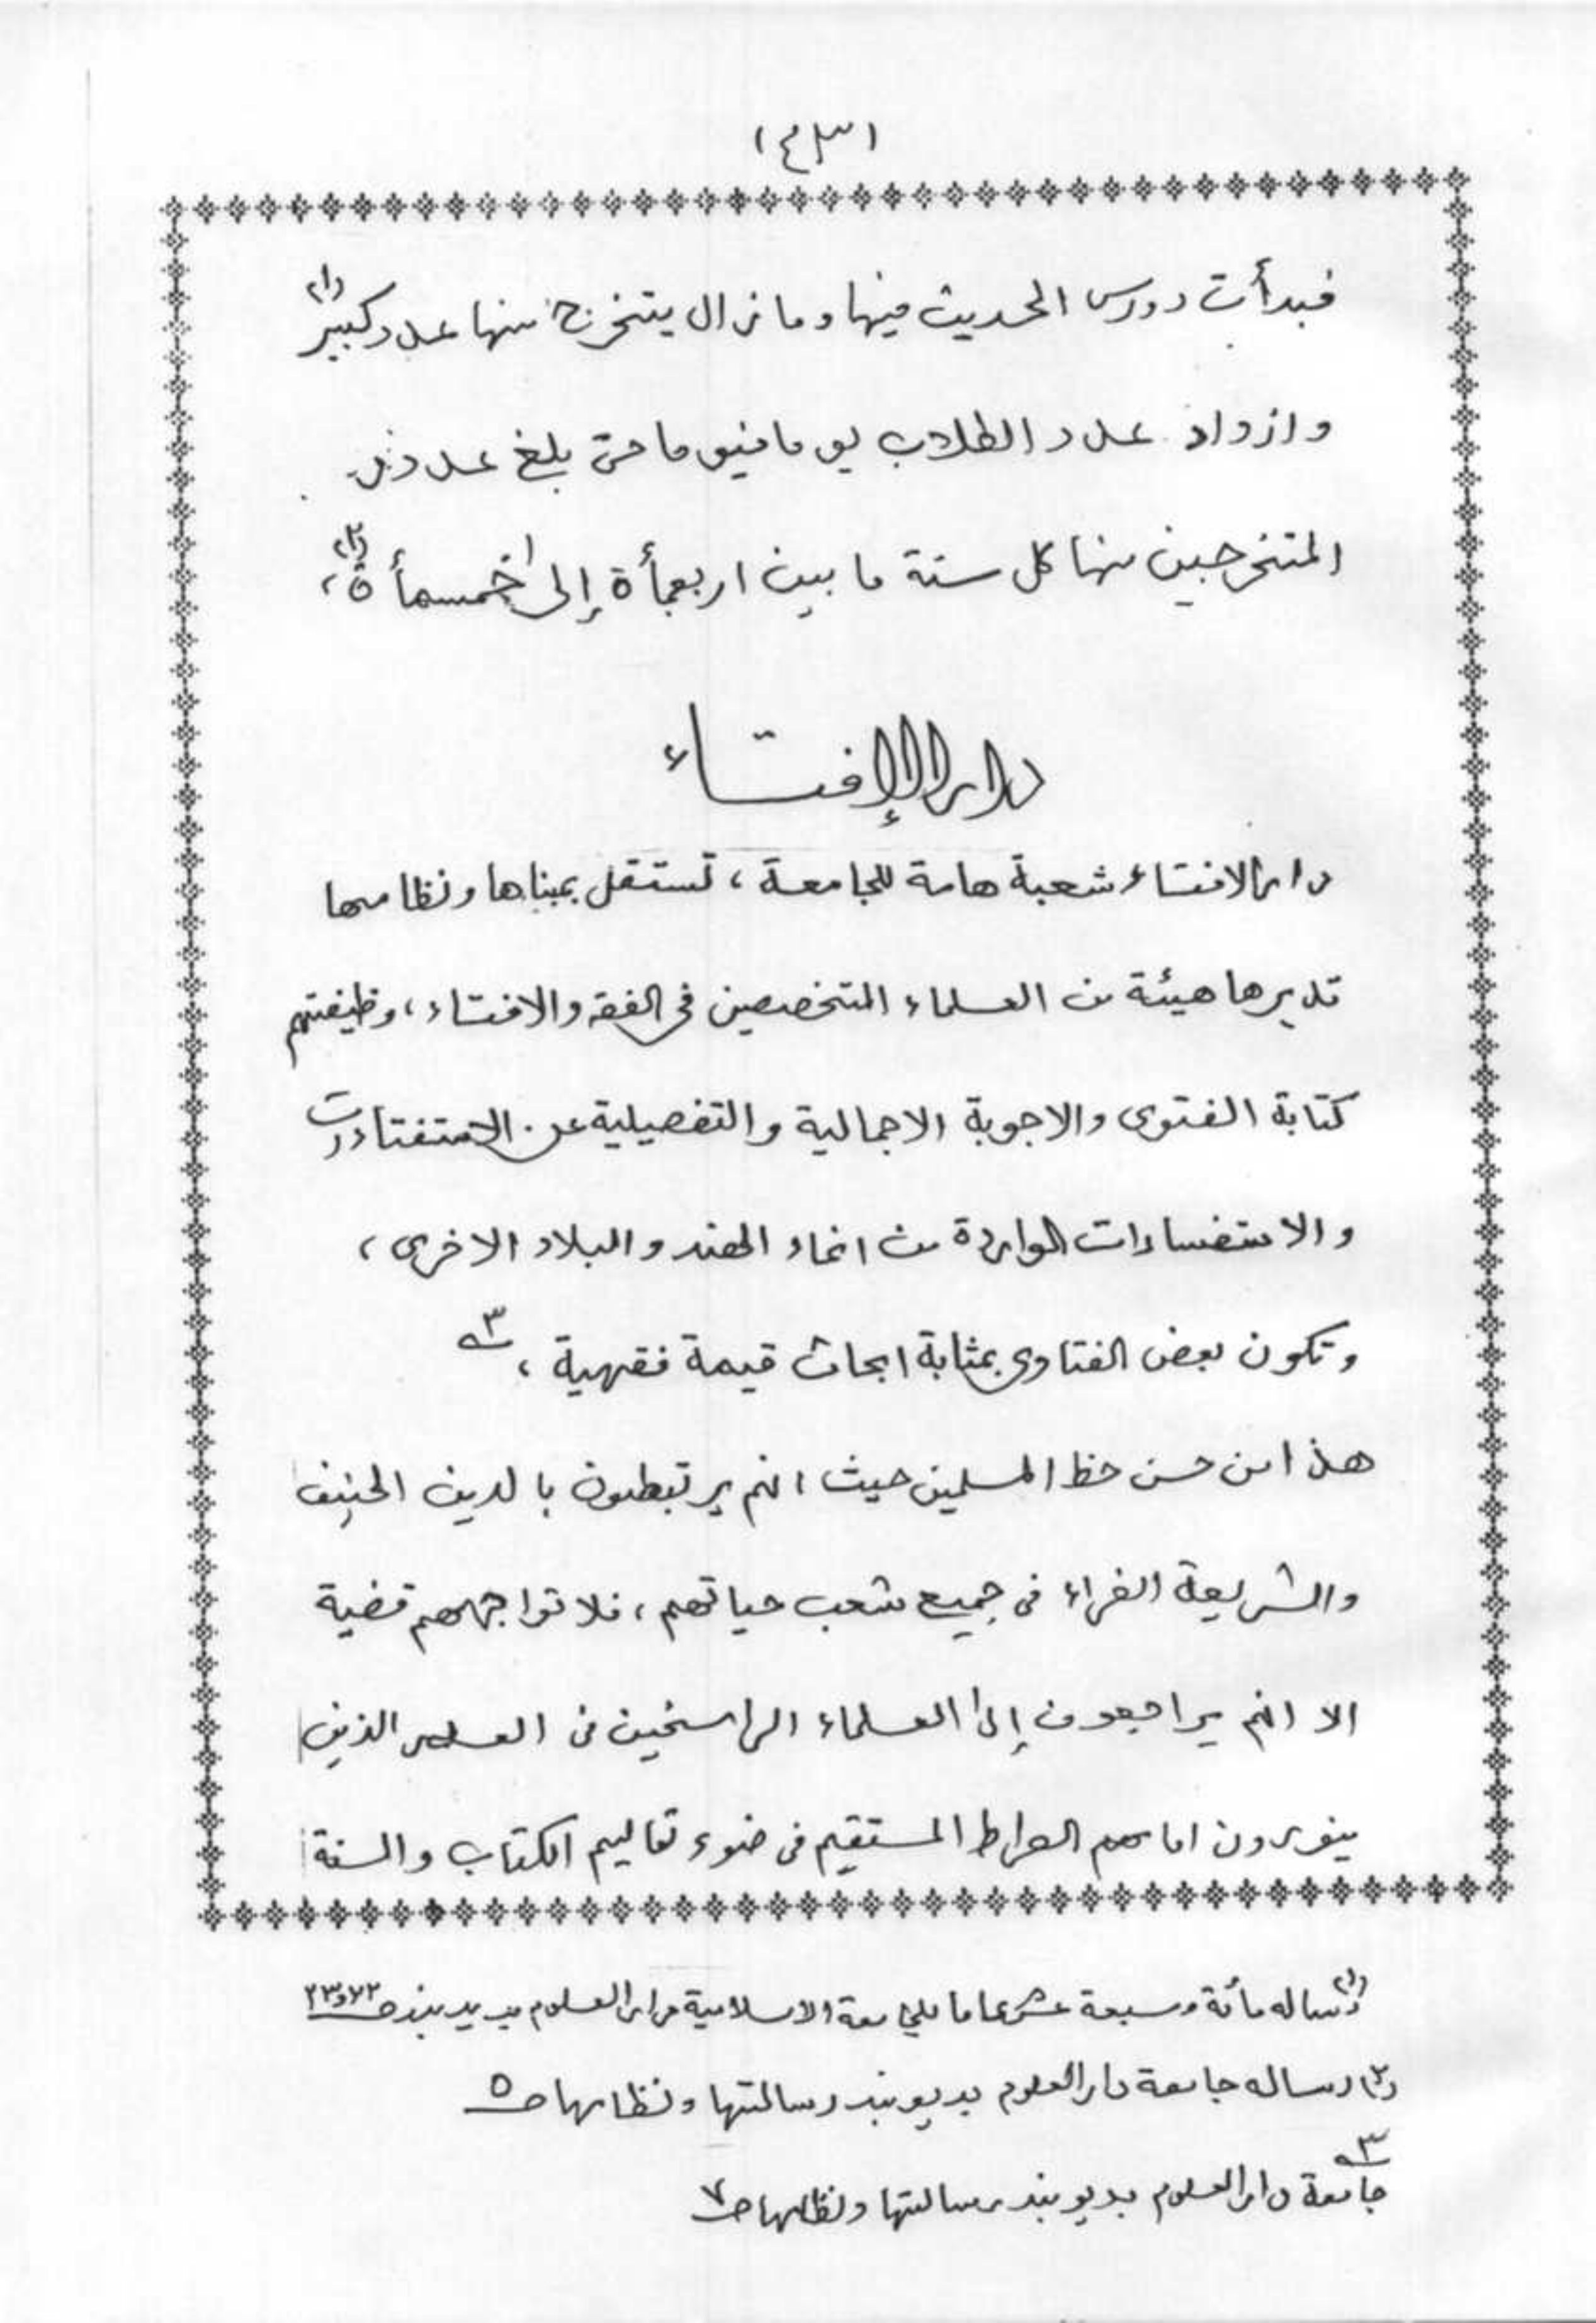 (٤٣)
فبدأت دورس الحديث فيها وما زال يتخرج منها عدد كبير (١)
وازداد عدد الطلاب يوما فيوما حتى بلغ عدد
المتخرجين منها كل سنة ما بين اربعمأة إلى خمسمأة (٢)،
دار الإفتاء
دار الافتاء شعبة هامة للجامعة، تستقل بمبناها ونظامها
تديرها هيئة من العلماء المتخصصين فى الفقه والافتاء، وظيفتهم
كتابة الفتوى والاجوبة الاجمالية والتفصيلية عن الاستفتاءات
والاستفسارات الواردة من انحاء الهند والبلاد الاخرى،
وتكون بعض الفتاوى بمثابة ابحاث قيمة فقهية، ٣
هذا من حسن حظ المسلمين حيث انهم يرتبطون بالدين الحنيف
والشريعة الغراء فى جميع شعب حياتهم، فلا تواجههم قضية
الا انهم يراجعون إلى العلماء الراسخين فى العلم الذين
ينورون امامهم الصراط المستقيم فى ضوء تعاليم الكتاب والسنة
(١) رساله مأئة وسبعة عشر عاما للجامعة الاسلامية دار العلوم بديوبند صـ
(٢) رساله جامعة دار العلوم بديوبند رسالتها ونظامها صـ ٥
٣ جامعة دار العلوم بديوبند رسالتها ونظامها صـ ٧